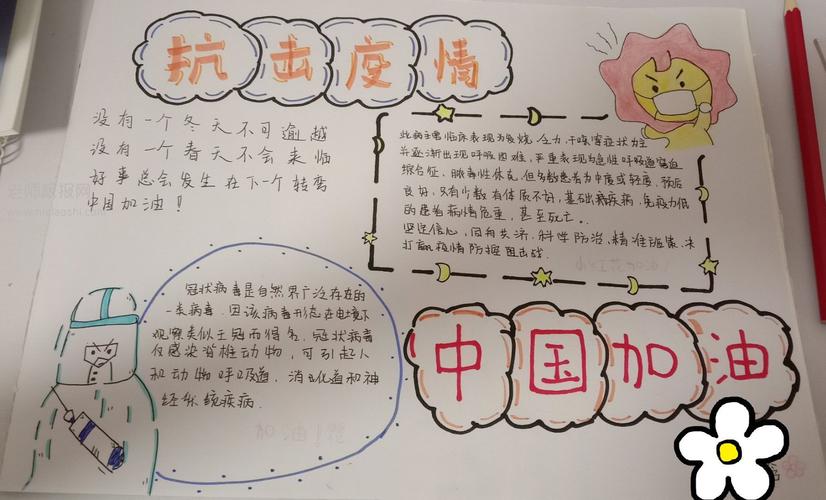 抗击疫情
没有一个冬天不可逾越
没有一个春天不会来临
好事总会发生在下一个转弯
中国加油！
此病主要临床表现为发烧，乏力，干咳等症状为主
并逐渐出现呼吸困难，严重表现为急性呼吸道窘迫
综合征，脓毒性休克，但多数患者为中度或轻度，预后
良好，只有少数有体质不好，基础病疾病，免疫力低
的患者病情危重，甚至死亡。
坚定信心，同舟共济，科学防治，精准施策，决
打赢疫情防控阻击战
冠状病毒是自然界广泛存在的
一类病毒，因该病毒形态在电镜下
观察类似王冠而得名。冠状病毒
仅感染脊椎动物，可引起人
和动物呼吸道，消化道和神
经系统疾病．
中国加油
老师板报网